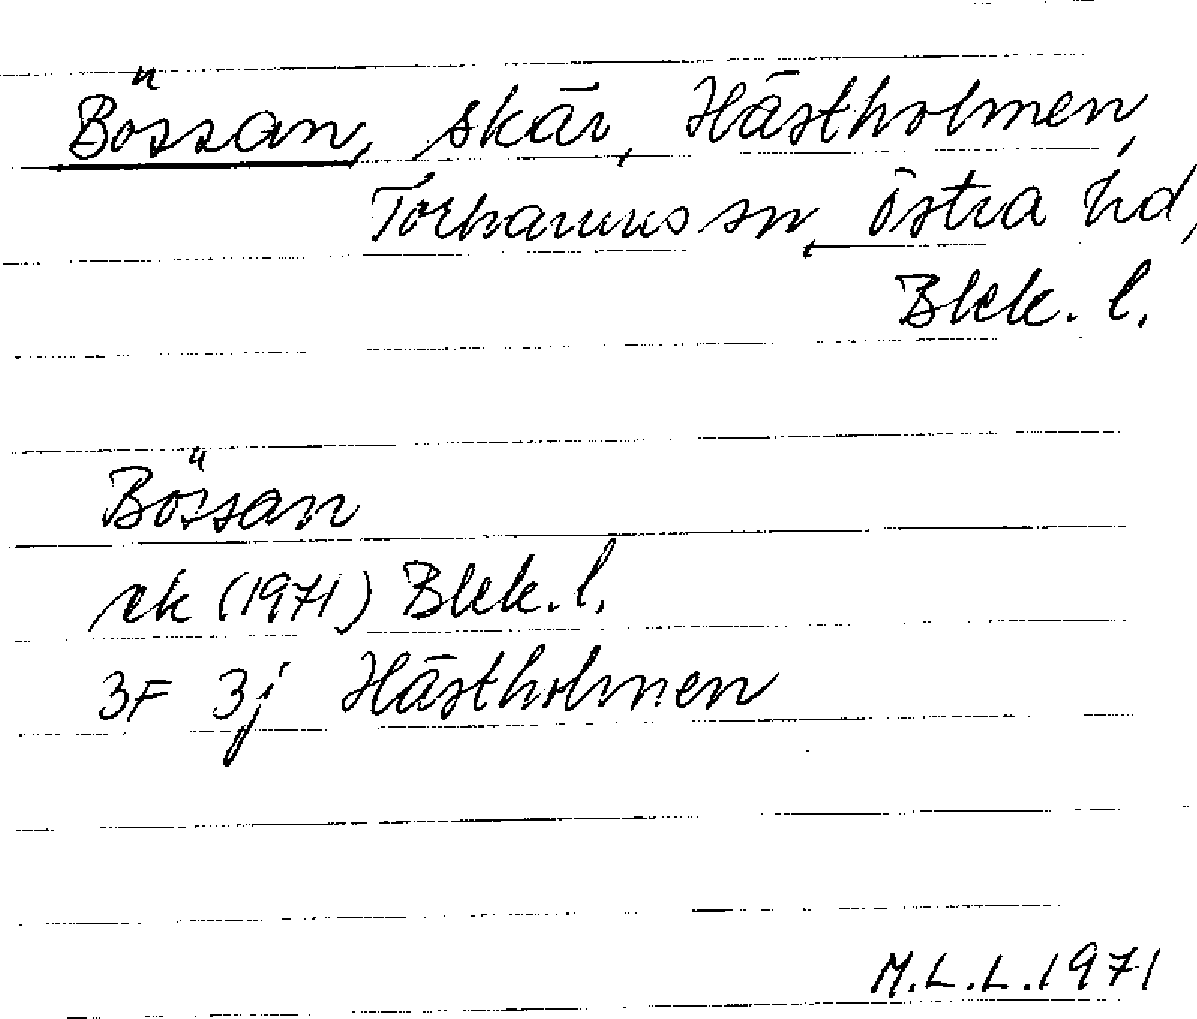 Bössan, skär, Hästholmen,
Torhamns sn, Östra hd,
Blek. l.
Bössan
ek (1971) Blek. l.
3F 3j Hästholmen
M.L.L. 1971